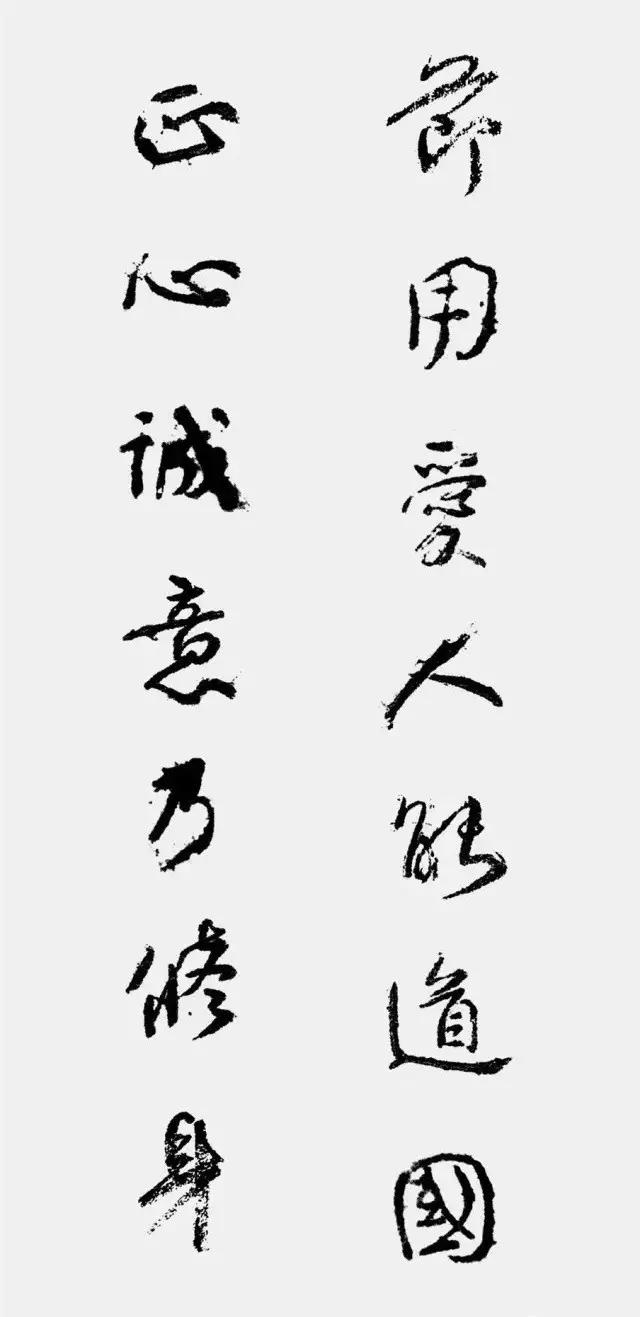 節用愛人能道國
正心诚意乃修身